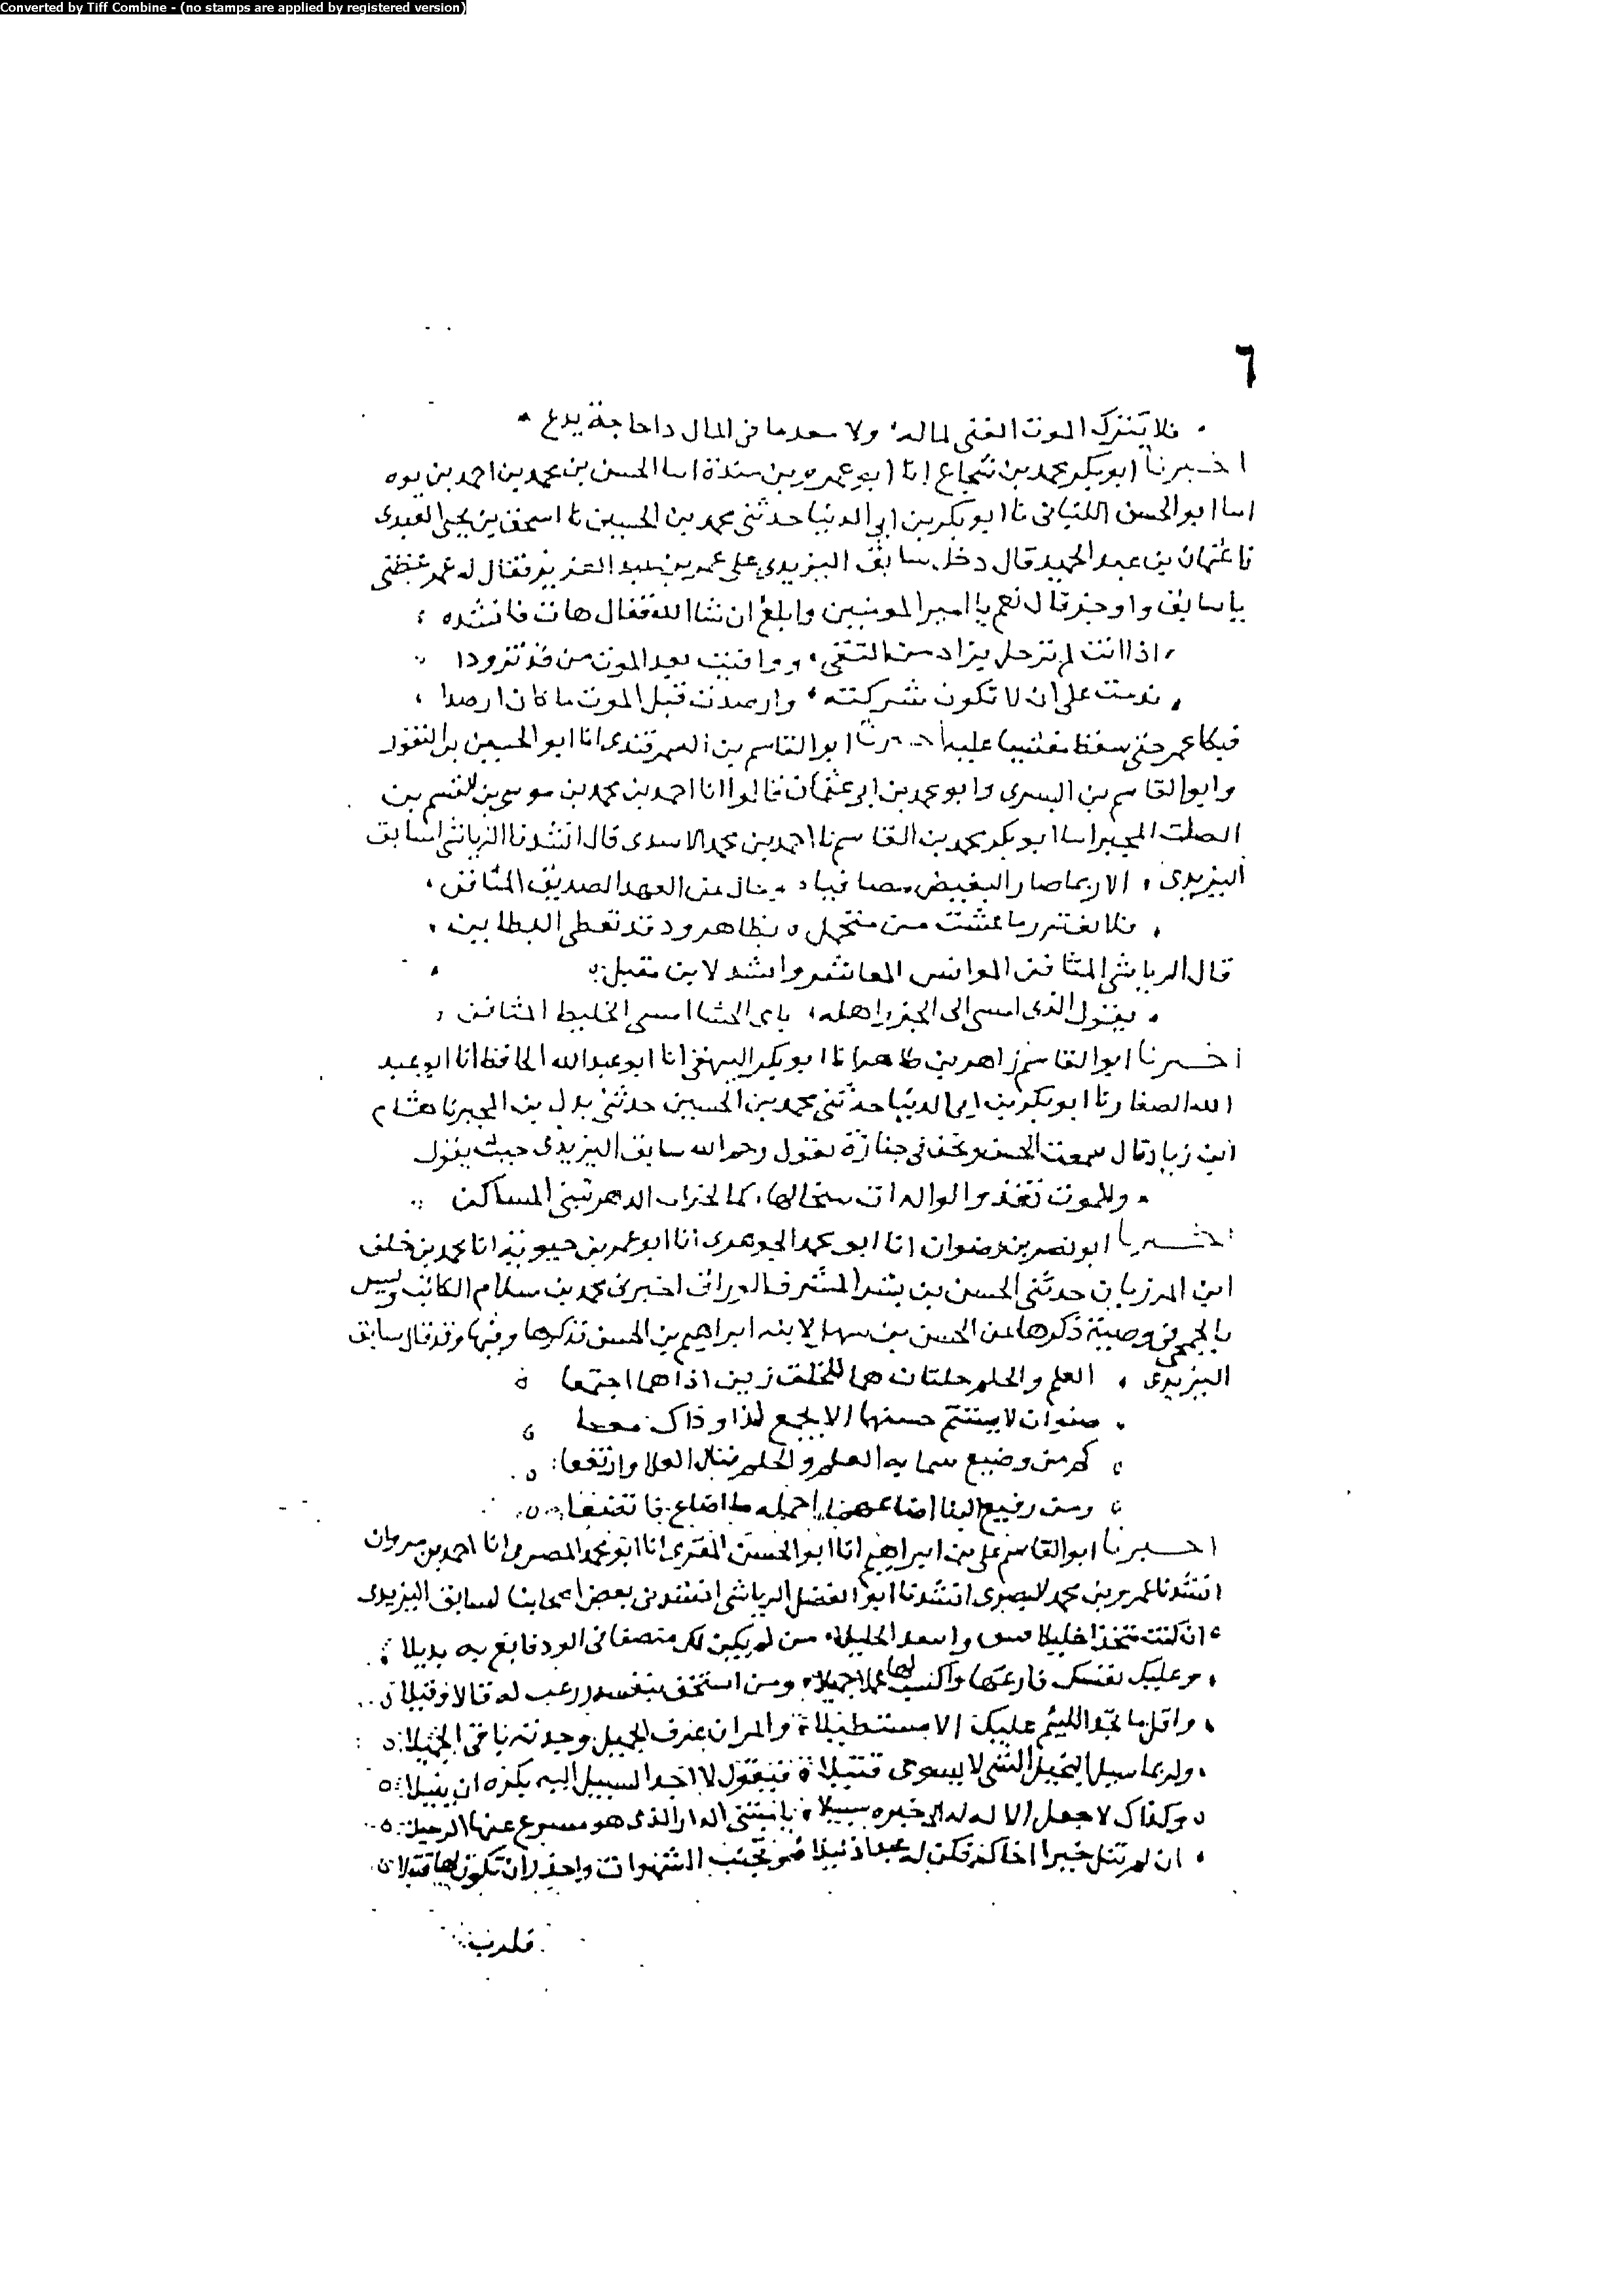 Converted by Tiff Combine - (no stamps are applied by registered version)
٦
فلا يترك الموت الغني لماله ولا معدما في المال ذا حاجة يدع
اخبرنا ابو بكر محمد بن شجاع انا ابو عمرو بن مندة انا الحسن بن محمد بن احمد بن يوه
انا ابو الحسن اللنباني نا ابو بكر بن ابي الدنيا حدثني محمد بن الحسين نا اسحق بن يحيى العبدي
نا عثمان بن عبد الحميد قال دخل سابق البزيدي على عمر بن عبد العزيز فقال له عمر عظني
يا سابق واوجز قال نعم يا امير المومنين وابلغ ان شا الله فقال هات فانشده
اذا انت لم ترحل بزاد من التقى ووافيت بعد الموت من قد تزودا
ندمت على ان لا تكون شركته وارصدت قبل الموت ما كان ارصدا
فبكا عمر حتى سقط مغشيا عليه ابو القاسم بن السمرقندي انا ابو الحسين بن النقور
وابو القاسم بن البسري وابو محمد بن ابي عثمان قالوا انا احمد بن محمد بن موسى بن القسم بن
الصلت المجبر انا ابو بكر محمد بن القاسم نا احمد بن محمد الاسدي قال انشدنا الرياشي لسابق
البزيدي الا ربما صار البغيض مصافيا وحال عن العهد الصديق المثافن
فلا تغترر ما عشت من متجمل بظاهر ود قد تغطى البطاين
قال الرياشي المثافن الموانس المعاشر وانشد لابن مقبل
يقول الذي امسى الى الحزن اهله باي الحشا امسى الخليط المثافن
اخبرنا ابو القاسم زاهر بن طاهر انا ابو بكر البيهقي انا ابو عبد الله الحافظ انا ابو عبد
الله الصفار نا ابو بكر بن ابي الدنيا حدثني محمد بن الحسين حدثني بدل بن المحبر نا هشام
ابن زياد قال سمعت الحسن ونحن في جنازة يقول رحم الله سابق البزيدي حيث يقول
وللموت تغذو الوالدات سخالها كما لخراب الدهر تبنى المساكن
اخبرنا ابو نصر بن رضوان انا ابو محمد الجوهري انا ابو عمر بن حيويه انا محمد بن خلف
ابن المرزبان حدثني الحسن بن بشر المشرف الوراق اخبرني محمد بن سلام الكاتب وليس
بالجمحي في وصية ذكرها عن الحسن بن سهل لابنه ابراهيم بن الحسن فذكرها وفيها وقد قال سابق
البزيدي العلم والحلم حلتان هما للخلق زين اذا هما اجتمعا
صنوان لا يستتم حسنهما الا بجمع لذا وذاك معا
كم من وضيع سما به العلم والحلم فنال العلا وارتفعا
ومن رفيع البنا اضاعهما اخمله ما اضاع فاتضعا
اخبرنا ابو القاسم علي بن ابراهيم انا ابو الحسن المقري انا ابو محمد المصري انا احمد بن مروان
انشدنا عمرو بن محمد البصري انشدنا ابو الفضل الرياشي انشدني بعض اصحابنا لسابق البزيدي
ان كنت متخذا خليلا واسعد الخليلا من لم يكن لك منصفا في الود فابغ به بديلا
وعليك نفسك فارعها واكسب لها عملا جميلا ومن استخف بنفسه زرعت له قالا وقيلا
واقل ما تجد اللئيم عليك الا مستطيلا والمرا ان عرف الجميل وجدته ياتي الجميلا
ولربما سيل البخيل الشي لا يسوى فتيلا فيقول لا اجد السبيل اليه يكره ان ينيلا
وكذاك لا جعل الاله له الى خير سبيلا يا مبتني الدار الذي هو مسرع عنها الرحيلا
ان لم تنل خيرا اخاك فكن له عبدا ذليلا وتجنب الشهوات واحذر ان تكون لها قتيلا
فلرب